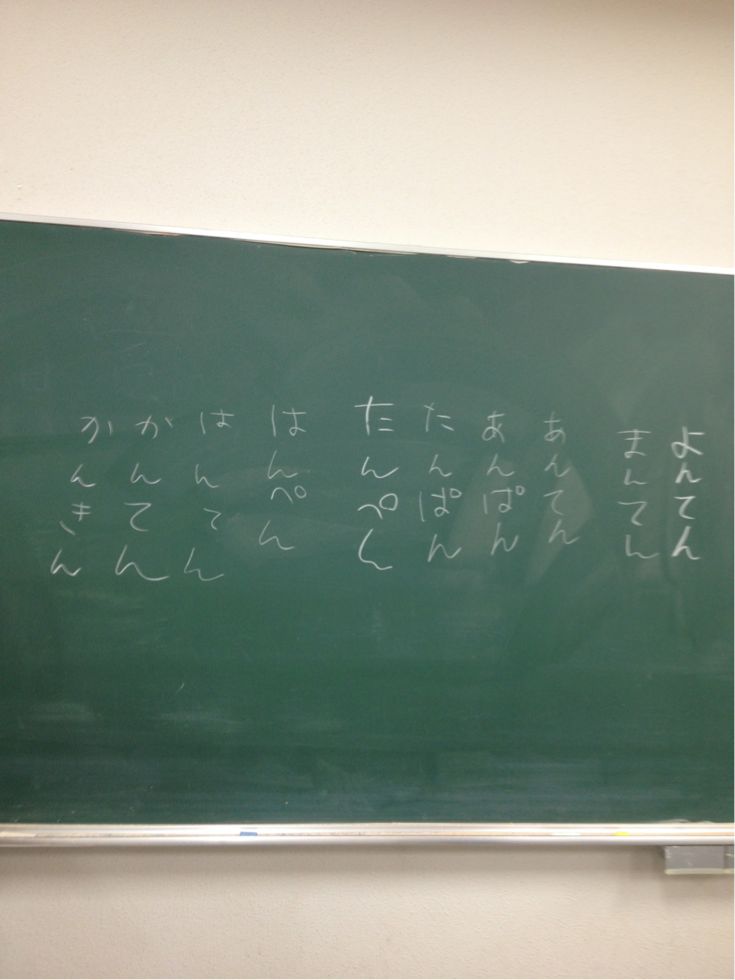 よんてん
まんてん
あんてん
あんぱん
たんぱん
たんぺん
はんぺん
はんてん
かんてん
かんきん